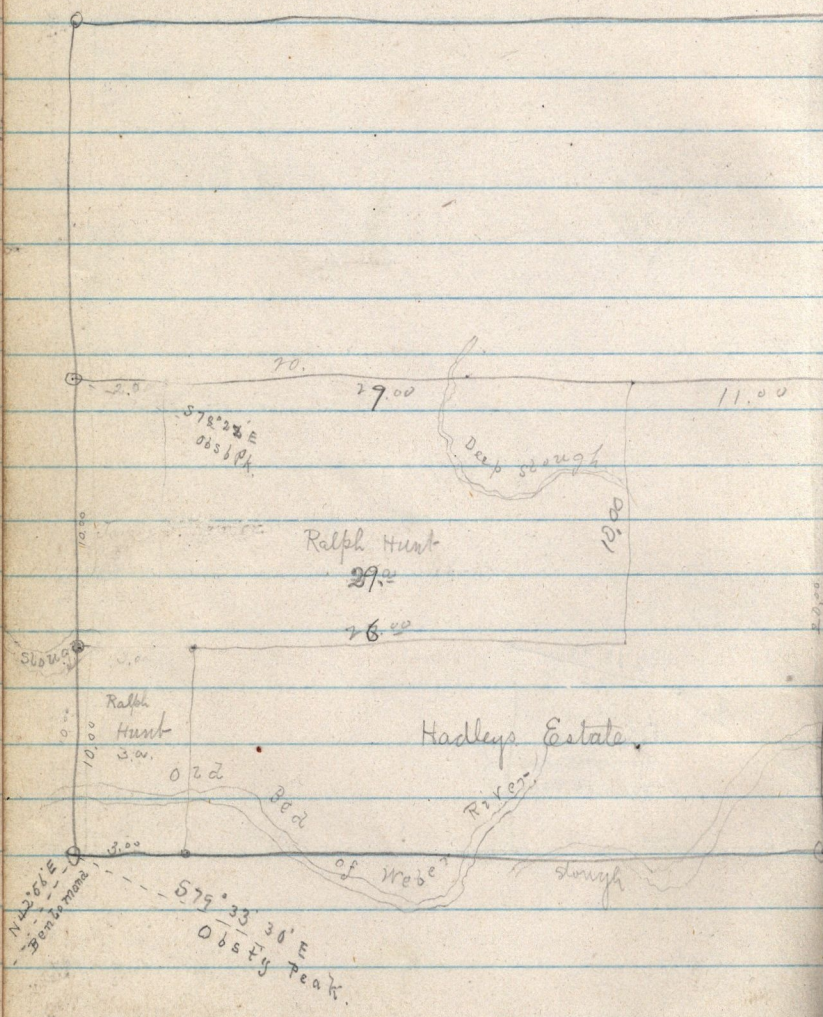 20.
2.0
29.00
11.00
S 78° 22' E
Obsty Pk.
Deep Slough
10.00
10.00
Ralph Hunt
29.a
26.00
20.00
Slough
3.0
Ralph
Hunt
3 a.
10.00
10.00
Hadleys Estate.
Old Bed of Weber River
13.00
Slough
N 42° 56' E
Benlomond
S 79° 33' 30" E
Obsty Peak.